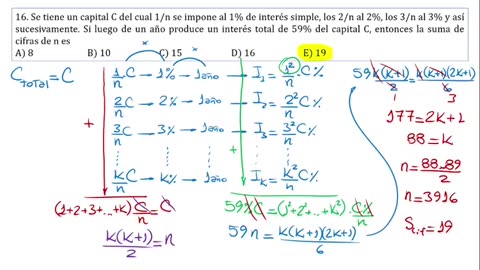 16. Se tiene un capital C del cual 1/n se impone al 1% de interés simple, los 2/n al 2%, los 3/n al 3% y así
sucevamente. Si luego de un año produce un interés total de 59% del capital C, entonces la suma de
cifras de n es
A) 8 B) 10 C) 15 D) 16 E) 19
C_TOTAL = C
1/n C → 1% → 1año → I₁ = 1²/n C%
2/n C → 2% → 1año → I₂ = 2²/n C%
3/n C → 3% → 1año → I₃ = 3²/n C%
k/n C → k% → 1año → I_k = k²/n C%
+ +
(1+2+3+...+k) C/n = C
k(k+1)/2 = n
59% C = (1²+2²+...+k²) C%/n
59n = k(k+1)(2k+1)/6
59 k(k+1)/2 = k(k+1)(2k+1)/6
1 3
177 = 2k+1
88 = k
n = 88·89/2
n = 3916
S_cif = 19